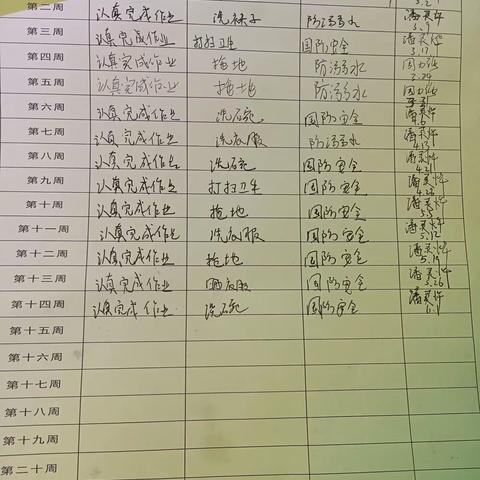 第二周 认真完成作业 洗袜子 防溺水
第三周 认真完成作业 打扫卫生 国防安全
第四周 认真完成作业 拖地 防溺水
第五周 认真完成作业 拖地 防溺水
第六周 认真完成作业 洗碗 国防安全
第七周 认真完成作业 洗衣服 防溺水
第八周 认真完成作业 洗碗 国防安全
第九周 认真完成作业 打扫卫生 国防安全
第十周 认真完成作业 拖地 国防安全
第十一周 认真完成作业 洗衣服 国防安全
第十二周 认真完成作业 拖地 国防安全 5.19
第十三周 认真完成作业 晒衣服 国防安全 5.26
第十四周 认真完成作业 洗碗 国防安全
第十五周
第十六周
第十七周
第十八周
第十九周
第二十周